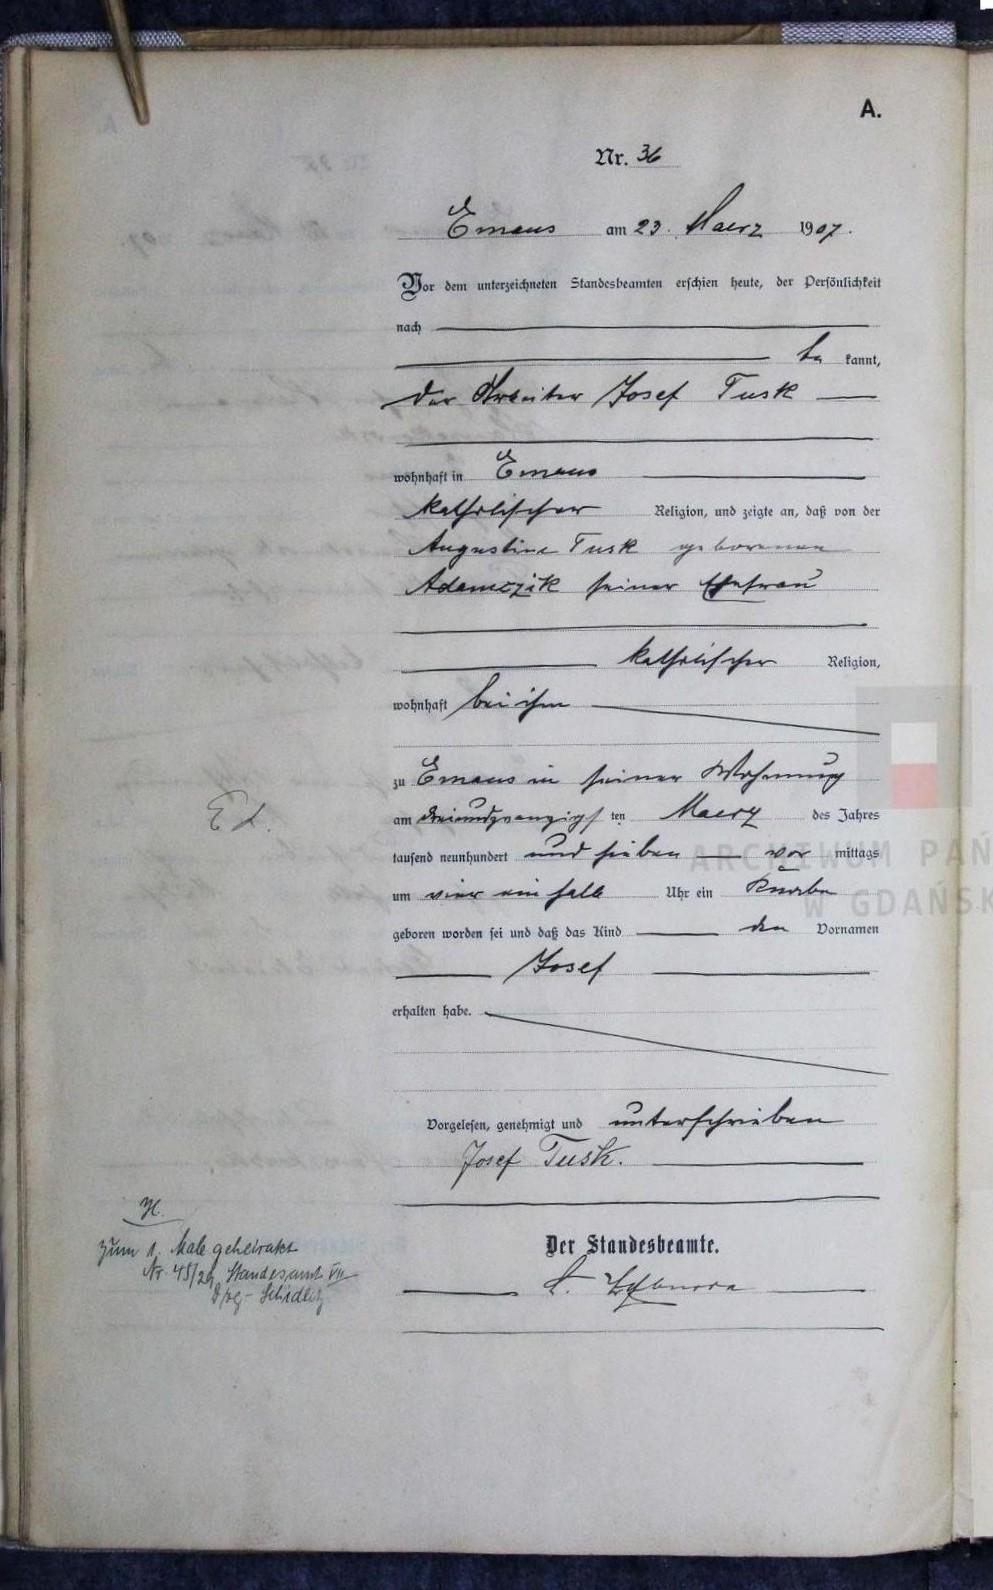 A.
Nr. 36
Emaus am 23. Maerz 1907.
Vor dem unterzeichneten Standesbeamten erschien heute, der Persönlichkeit
nach
be kannt,
der Arbeiter Josef Tusk
wohnhaft in Emaus
katholischer Religion, und zeigte an, daß von der
Augustine Tusk geborenen
Adamczik seiner Ehefrau
katholischer Religion,
wohnhaft bei ihm
zu Emaus in seiner Wohnung
am dreiundzwanzigsten Maerz des Jahres
tausend neunhundert und sieben vor mittags
um vier ein halb Uhr ein Knabe
geboren worden sei und daß das Kind den Vornamen
Josef
erhalten habe.
Vorgelesen, genehmigt und unterschrieben
Josef Tusk.
Der Standesbeamte.
H.
zum 1. Male geheiratet
Nr. 45/29, Standesamt VII
Dzg- Schidlitz
ARCHIWUM PAŃ
W GDAŃSK